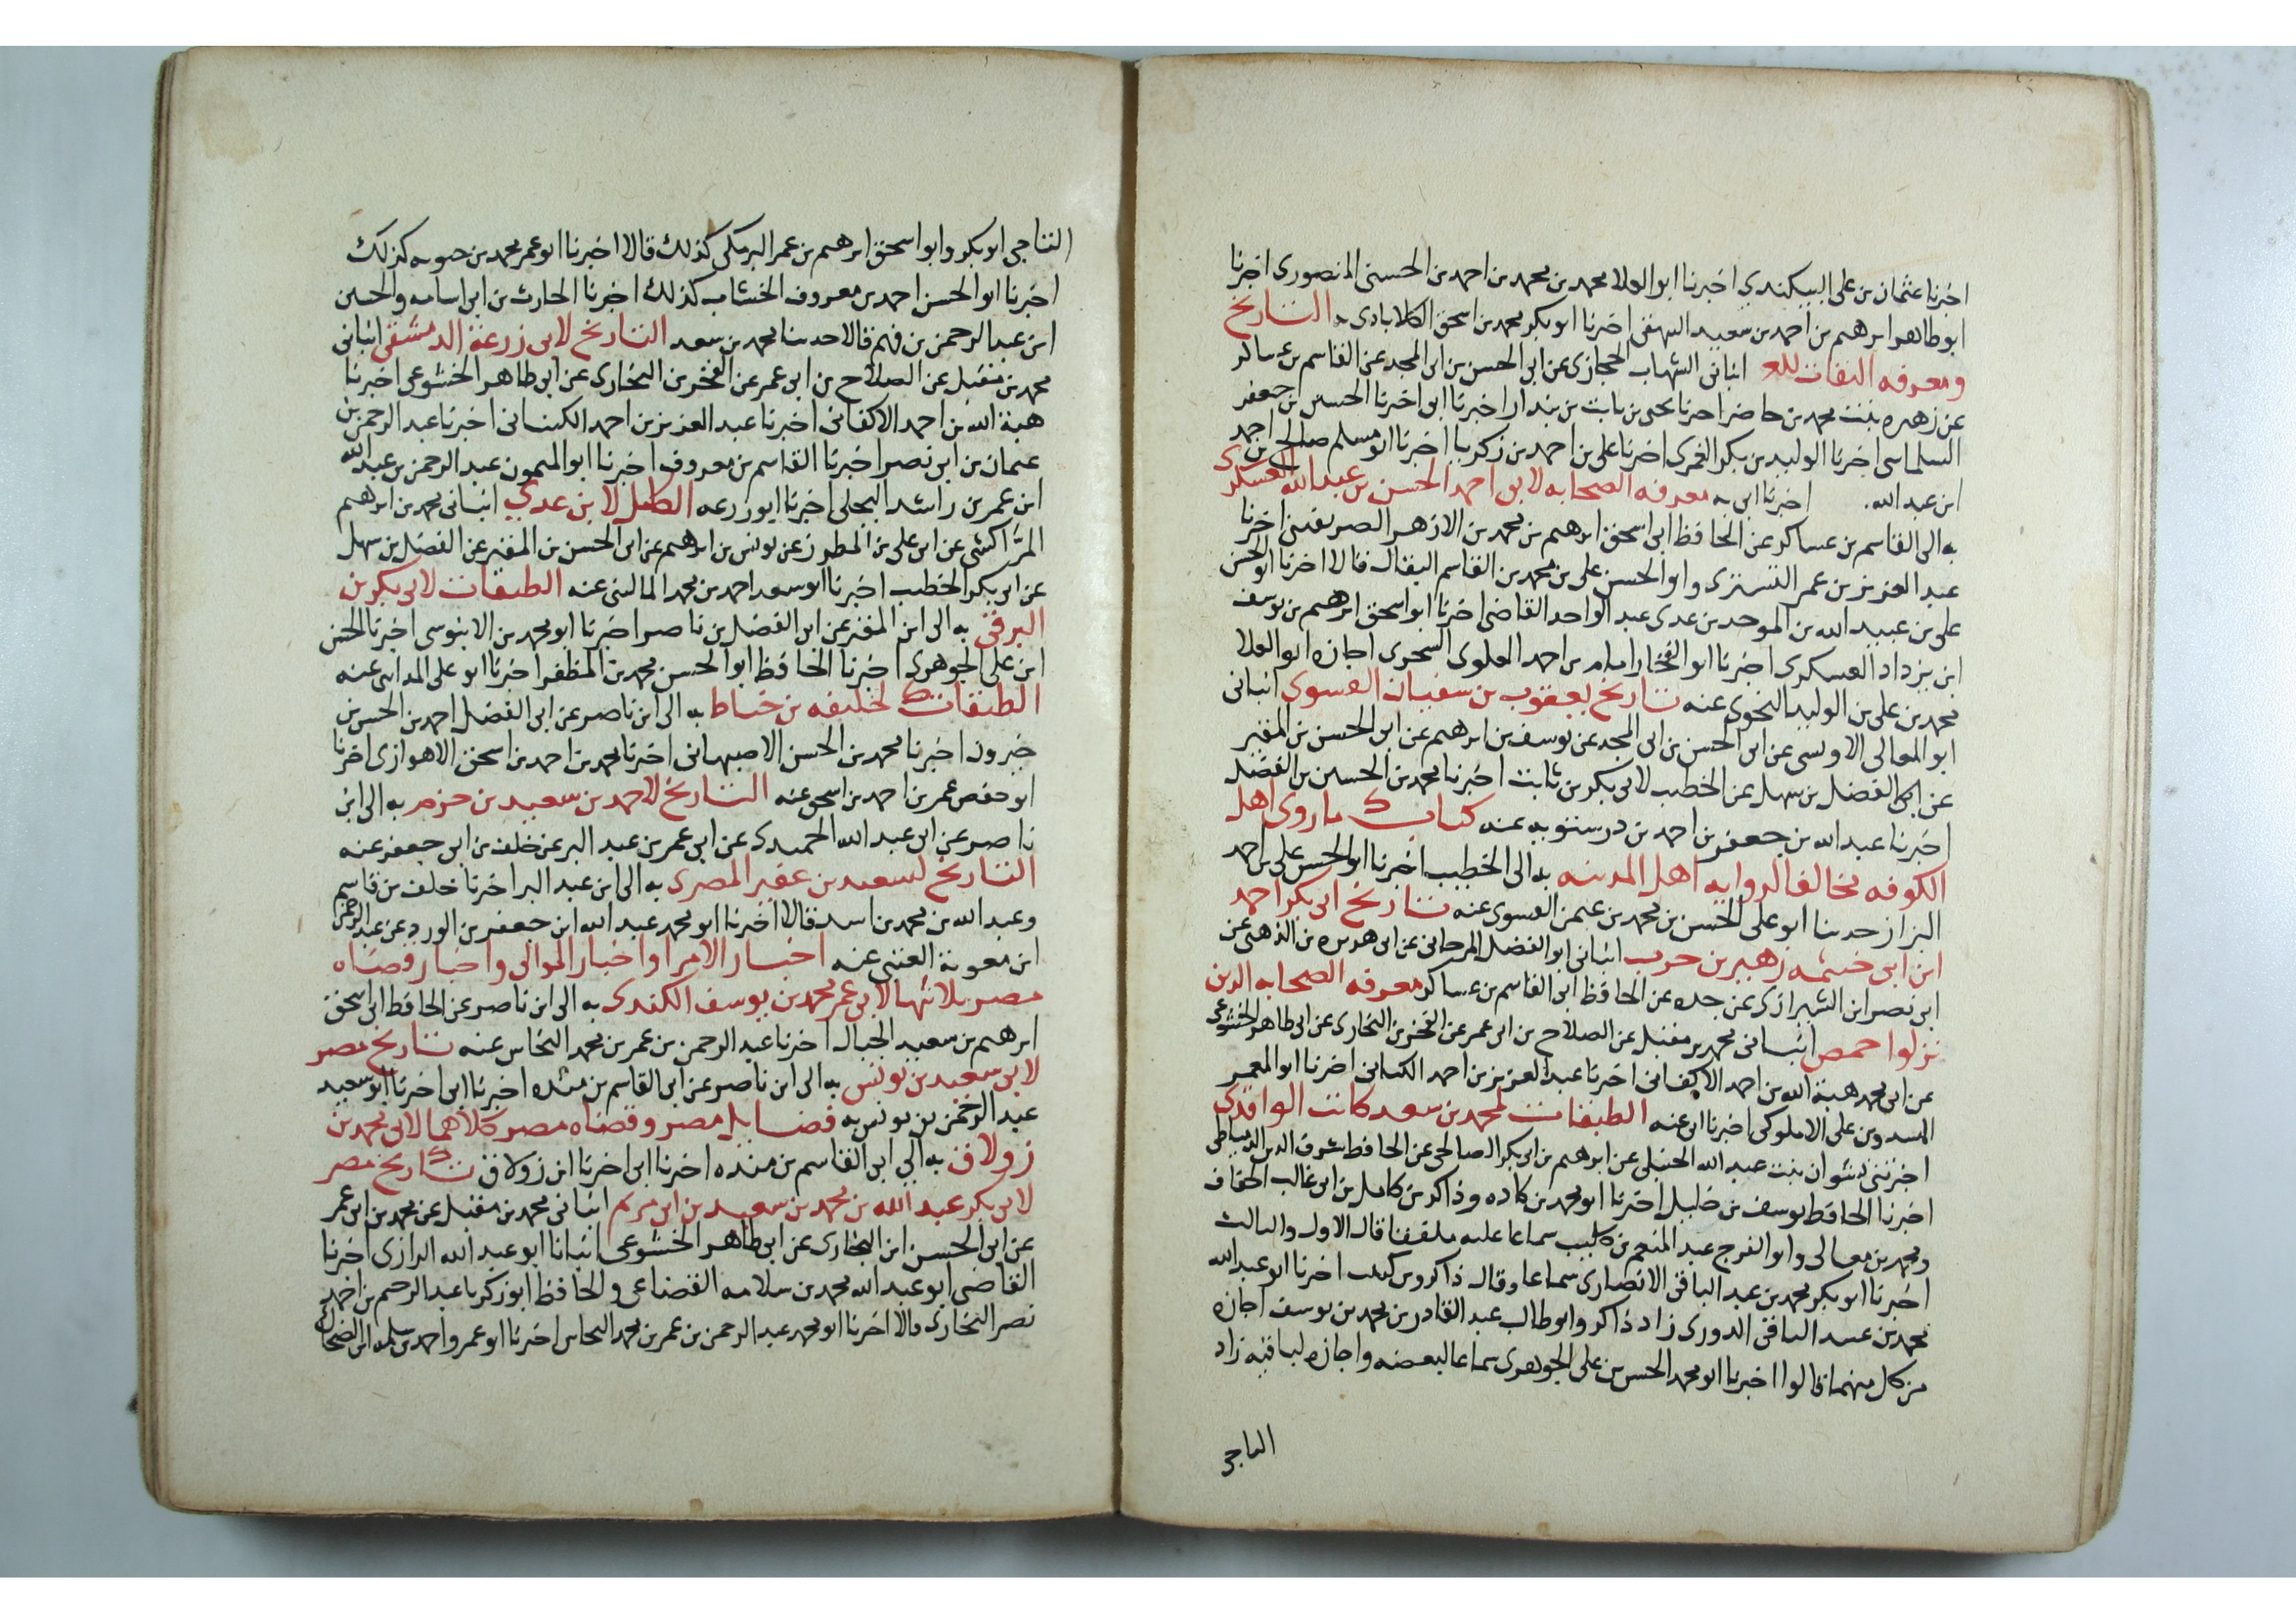 اخبرنا عثمان بن على البيكندي اخبرنا ابو العلا محمد بن محمد بن احمد بن الحسنى المنصورى اخبرنا
ابو طاهر ابرهيم بن احمد بن سعيد البيهقى اخبرنا ابو بكر محمد بن اسحق الكلابادى به التاريخ
ومعرفه الثقات انبانى الشهاب الحجازى عن ابى الحسن بن ابى المجد عن القاسم بن عساكر
عن زهره بنت محمد بن حاضر اخبرنا يحيى بن ثابت بن بندار اخبرنا ابى اخبرنا الحسين بن جعفر
السلماسى اخبرنا الوليد بن بكر الغمرى اخبرنا على بن احمد بن زكريا اخبرنا ابو مسلم صالح بن احمد
ابن عبد الله. اخبرنا ابى به معرفه الصحابه لابى احمد الحسن بن عبد الله العسكرى
به الى القاسم بن عساكر عن الحافظ ابى اسحق ابرهيم بن محمد بن الازهر الصريفينى اخبرنا
عبد العزيز بن عمر التسترى وابو الحسن على بن محمد بن القاسم البقال قالا اخبرنا ابو الحسن
على بن عبيد الله بن الموحد بن عدى عبد الواحد القاضى اخبرنا ابو اسحق ابرهيم بن يوسف
ابن يزداد العسكرى اخبرنا ابو الفخار بن احمد العلوى اجازه ابو العلا
محمد بن على بن الوليد النحوى عنه تاريخ يعقوب بن سفيان الفسوى انبانى
ابو المعالى الاويسى عن ابى الحسن بن ابى المجد عن يوسف بن ابرهيم عن ابى الحسن بن المقير
عن ابى الفضل بن سهل عن الخطيب لابى بكر بن ثابت اخبرنا محمد بن الحسين بن الفضل
اخبرنا عبد الله بن جعفر بن احمد بن درستويه عنه كتاب ما روى اهل
الكوفه مخالفا لروايه اهل المدينه به الى الخطيب اخبرنا ابو الحسن على بن احمد
البزاز حدثنا ابو على الحسن بن محمد بن عثمن الفسوى عنه تاريخ ابى بكر احمد
ابن ابى خيثمه زهير بن حرب انبانى ابو الفضل المرجانى عن ابى هريره بن الذهبى عن
ابى نصر ابن الشيرازى عن جده عن الحافظ ابى القاسم بن عساكر معرفه الصحابه الذين
نزلوا حمص انبانى محمد بن مقبل عن الصلاح بن ابى عمر عن الفخر بن البخارى عن ابى طاهر الخشوعى
عن ابى محمد هبة الله بن احمد الاكفانى اخبرنا عبد العزيز بن احمد الكنانى اخبرنا ابو المعمر
المسدد بن على الاملوكى اخبرنا ابى عنه الطبقات لمحمد بن سعد كاتب الواقدى
اخبرتنى نشوان بنت عبد الله الحنبلى عن ابرهيم بن ابى بكر الصالحى عن الحافظ شرف الدين الدمياطى
اخبرنا الحافظ يوسف بن خليل اخبرنا ابو محمد بن كاده وذاكر بن كامل بن ابى غالب الخفاف
ومحمد بن معالى وابو الفرج عبد المنعم بن كليب سماعا عليه ملفقا قال الاول والثالث
اخبرنا ابو بكر محمد بن عبد الباقى الانصارى سماعا وقال ذاكر وبن كليب اخبرنا ابو عبد الله
محمد بن عبد الباقى الدورى زاد ذاكر وابو طالب عبد القادر بن محمد بن يوسف اجازه
من كل منهما قالوا اخبرنا ابو محمد الحسن بن على الجوهرى سماعا لبعضه واجازه لباقيه زاد
ابو بكر وابو اسحق ابرهيم بن عمر البرمكى كذلك قالا اخبرنا ابو عمر محمد بن حيويه كذلك
اخبرنا ابو الحسن احمد بن معروف الخشاب كذلك اخبرنا الحارث بن ابى اسامه والحسين
ابن عبد الرحمن بن فهم قالا حدثنا محمد بن سعد التاريخ لابى زرعة الدمشقى انبانى
محمد بن مقبل عن الصلاح بن ابى عمر عن الفخر بن البخارى عن ابى طاهر الخشوعى اخبرنا
هبة الله بن احمد الاكفانى اخبرنا عبد العزيز بن احمد الكنانى اخبرنا عبد الرحمن بن
عثمان بن ابى نصر اخبرنا القاسم بن معروف اخبرنا ابو الميمون عبد الرحمن بن عبد الله
ابن عمر بن راشد البجلى اخبرنا ابو زرعه العلل لابن عدي انبانى محمد بن ابرهيم
المراكشى عن ابى على بن المطرز عن يونس بن ابرهيم عن ابى الحسن بن المقير عن الفضل بن سهل
عن ابى بكر الخطيب اخبرنا ابو سعد احمد بن محمد المالينى عنه الطبقات لابى بكر بن
البرقى به الى ابن المقير عن ابى الفضل بن ناصر اخبرنا ابو محمد بن الابنوسى اخبرنا الحسن
ابن على الجوهرى اخبرنا الحافظ ابو الحسن محمد بن المظفر اخبرنا ابو على المداينى عنه
الطبقات لخليفه بن خياط به الى ابن ناصر عن ابى الفضل احمد بن الحسن بن
خيرون اخبرنا محمد بن الحسن الاصبهانى اخبرنا محمد بن احمد بن اسحق الاهوازى اخبرنا
ابو حفص عمر بن احمد بن اسحق عنه التاريخ لاحمد بن سعيد بن حزم به الى ابن
ناصر عن ابى عبد الله الحميدى عن ابى عمر بن عبد البر عن خلف بن ابى جعفر عنه
التاريخ لسعيد بن عفير المصرى به الى ابن عبد البر اخبرنا خلف بن قاسم
وعبد الله بن محمد بن اسد قالا اخبرنا ابو محمد عبد الله ابن جعفر بن الورد عن عبد الرحمن
ابن معوية العتبى عنه اخبار الامرا واخبار الموالى واخبار قضاه
مصر ثلاثتها لابى عمر محمد بن يوسف الكندى به الى ابن ناصر عن الحافظ ابى اسحق
ابرهيم بن سعيد الحبال اخبرنا عبد الرحمن بن عمر بن محمد النحاس عنه تاريخ مصر
لابى سعيد بن يونس به الى ابن ناصر عن ابى القاسم بن منده اخبرنا ابى اخبرنا ابو سعيد
عبد الرحمن بن يونس به فضايل مصر وقضاه مصر كلاهما لابى محمد بن
زولاق به الى ابى القاسم بن منده اخبرنا ابى اخبرنا ابن زولاق تاريخ مصر
لابى بكر عبد الله بن محمد بن سعيد بن ابى مريم انبانى محمد بن مقبل عن محمد بن ابى عمر
عن ابى الحسن ابن البخارى عن ابى طاهر الخشوعى انبانا ابو عبد الله الرازى اخبرنا
القاضى ابو عبد الله محمد بن سلامه القضاعى والحافظ ابو زكريا عبد الرحيم بن احمد
نصر البخارى قالا اخبرنا ابو محمد عبد الرحمن بن عمر بن محمد النحاس اخبرنا ابو عمرو احمد بن سلمه بن الضحاك